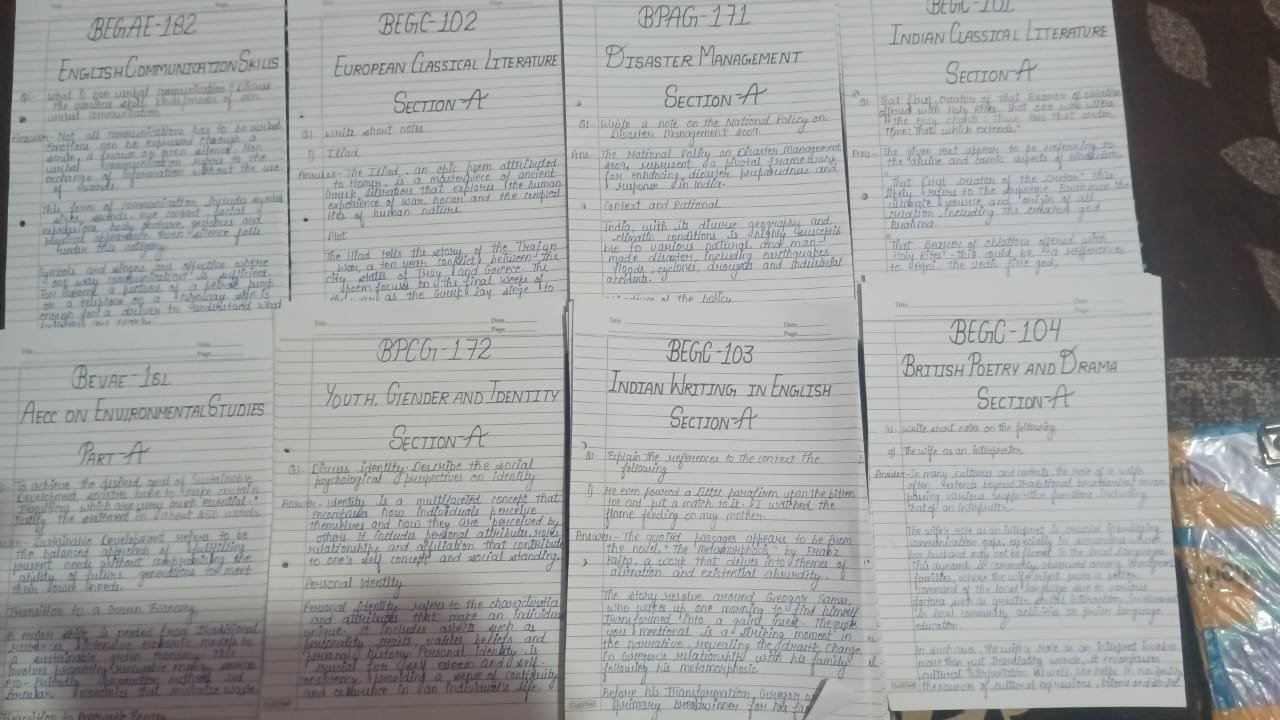 BEGAE-182
ENGLISH COMMUNICATION SKILLS
Q1- What is non verbal communication? Discuss
the various
verbal communication
Answer- Not all communications has to be verbal
Emotions can be expressed through a
smile, a
verbal communication refers to the
exchange of information without the use
of words.
This form of communication includes symbol
eye contact, facial
expressions, body posture, gestures and
physical appearance. Even silence falls
under this category
Symbols and are effective where
one way communication is sufficient.
a picture of a petrol pump
or a telephone on a highway sign is
enough for a driver to understand what
BEGC-102
EUROPEAN CLASSICAL LITERATURE
SECTION-A
Q1 Write short notes
i) Iliad
Answer- The Iliad, an epic poem attributed
to Homer, is a masterpiece of ancient
Greek literature that explores the human
experience of war, honor and the complexi
ties of human nature.
Plot
The Iliad tells the story of the Trojan
War, a ten year conflict between the
city states of Troy and Greece. The
poem focuses on the final weeks of
the war as the Greek lay siege to
BPAG-171
DISASTER MANAGEMENT
SECTION-A
Q1- Write a note on the National Policy on
Disaster Management 2009.
Ans- The National Policy on Disaster Management
2009, represent a pivotal framework
for enhancing disaster preparedness and
response in India.
Context and Rational
India, with its diverse geography and
climatic conditions is highly suscepti
ble to various natural and man-
made disaster, including earthquakes
floods, cyclones, droughts and industrial
accidents.
of the policy
BEGC-101
INDIAN CLASSICAL LITERATURE
SECTION-A
Q1- That first creator of That Bearer of oblation
offered with Holy Rites, That one who utters
the Holy chants, Those two that order
Time: That which extends."
Ans- The given text appear to be referring to
the divine and cosmic aspects of Hinduism.
"That first creator of the creator" This
likely refers to the supreme the
ultimate source and origin of all
creation, including the creator god
Brahma.
"That Bearer of oblations offered with
Holy Rites" - this could be a reference
to Agni, the vedic fire god,
Title Date
Page
BEVAE-181
AECC ON ENVIRONMENTAL STUDIES
PART-A
To achieve the desired goal of Sustainable
Development societies have to make certain
transitions which are very much essential"
Justify the statement in about 250 words.
Sustainable Development refers to be
the balanced approach of fulfilling
present needs without compromising the
ability of future generations to meet
their own needs.
Transition to a Green Economy
A major shift is needed from traditional
resources intensive economic models to
a sustainable green economy this
involves promoting renewable energy sources
eco-friendly production methods and
circular economies that minimize waste
Title Date
Page
BPCG-172
YOUTH, GENDER AND IDENTITY
SECTION-A
Q1- Discuss identity. Describe the social
psychological perspectives on identity
Answer- Identity is a multifaceted concept that
encompasses how individuals perceive
themselves and how they are perceived by
others. It includes personal attributes, roles
relationships and affiliation that contribute
to one's self concept and social standing.
Personal Identity
Personal identity refers to the characteristics
and attributes that make an individual
unique. It includes aspects such as
personality traits, values beliefs and
personal history. Personal Identity is
crucial for self esteem and self-
consistency, providing a sense of continuity
and coherence in an individual's life.
Title Date
Page
BEGC-103
INDIAN WRITING IN ENGLISH
SECTION-A
Q1- Explain the references to the context the
following
i) He even poured a little paraffin upon the bitten
toe and put a match to it. I watched the
flame feeding on my mother.
Answer- The quoted passages appears to be from
the novel, "The metamorphosis" by Franz
Kafka, a work that delves into themes of
alienation and existential absurdity.
The story revolve around Gregor Samsa,
who wakes up one morning to find himself
transformed into a gaint insect. The quote
you mentional is a striking moment in
the narrative, revealing the drastic change
in Gregor's relationship with his family
following his metamorphosis.
Before his transformation, Gregor
primary breadwinner for his
Title Date
Page
BEGC-104
BRITISH POETRY AND DRAMA
SECTION-A
Q1- Write short notes on the following
a) The wife as an interpreter
Answer- In many cultures and contexts, the role of a wife
often extends beyond traditional
that of an interpreter.
The wife's role as an interpret is crucial in bridging
communication gaps, especially in
her husband may not be fluent in the local language.
This dynamic is commonly observed among immigrant
families, where the wife might possess a better
command of the local language due to various
factors such as greater social interaction, involvement
in local community activities or prior language
education.
In such case, the wife's role as an interpret involves
more than just translating words, it encompasses
cultural interpretation as well. she helps in navigating
the nuances of cultural expressions, idioms and social